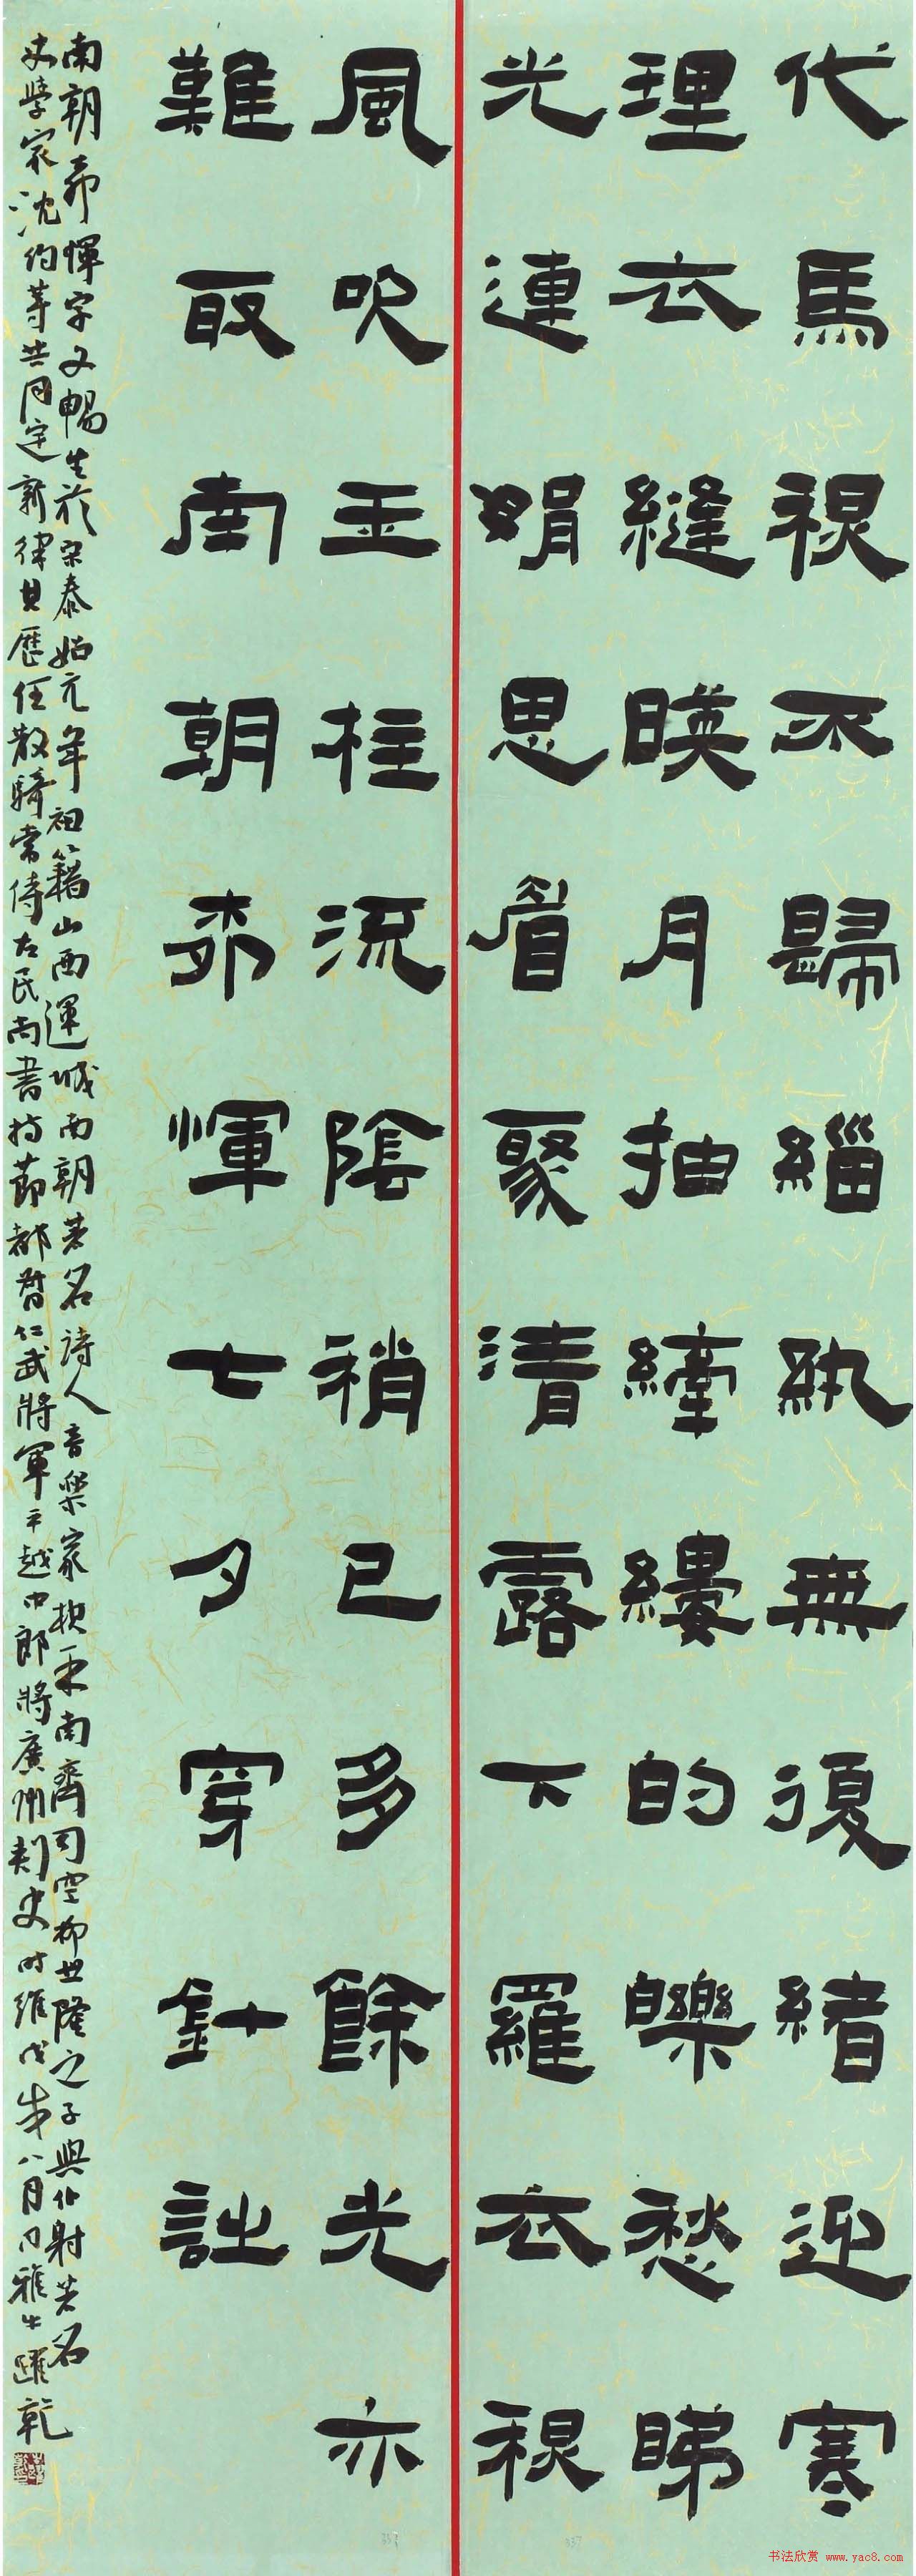 代馬秋不歸緇紈無復緒迎寒
理衣縫暎月抽縴縷的皪愁睇
光連娟思眉聚清露下羅衣秋
風吹玉柱流陰稍已多餘光亦
難取南朝柳惲七夕穿針詩
南朝柳惲字文暢生於宋泰始元年祖籍山西運城南朝著名詩人音樂家棋手南齊司空柳世隆之子與仆射著名
史學家沈約等共同定新律其歷任散騎常侍左民尚書持節都督仁武將軍平越中郎將廣州刺史時維戊戌八月躍乾
書法欣赏 www.yac8.com